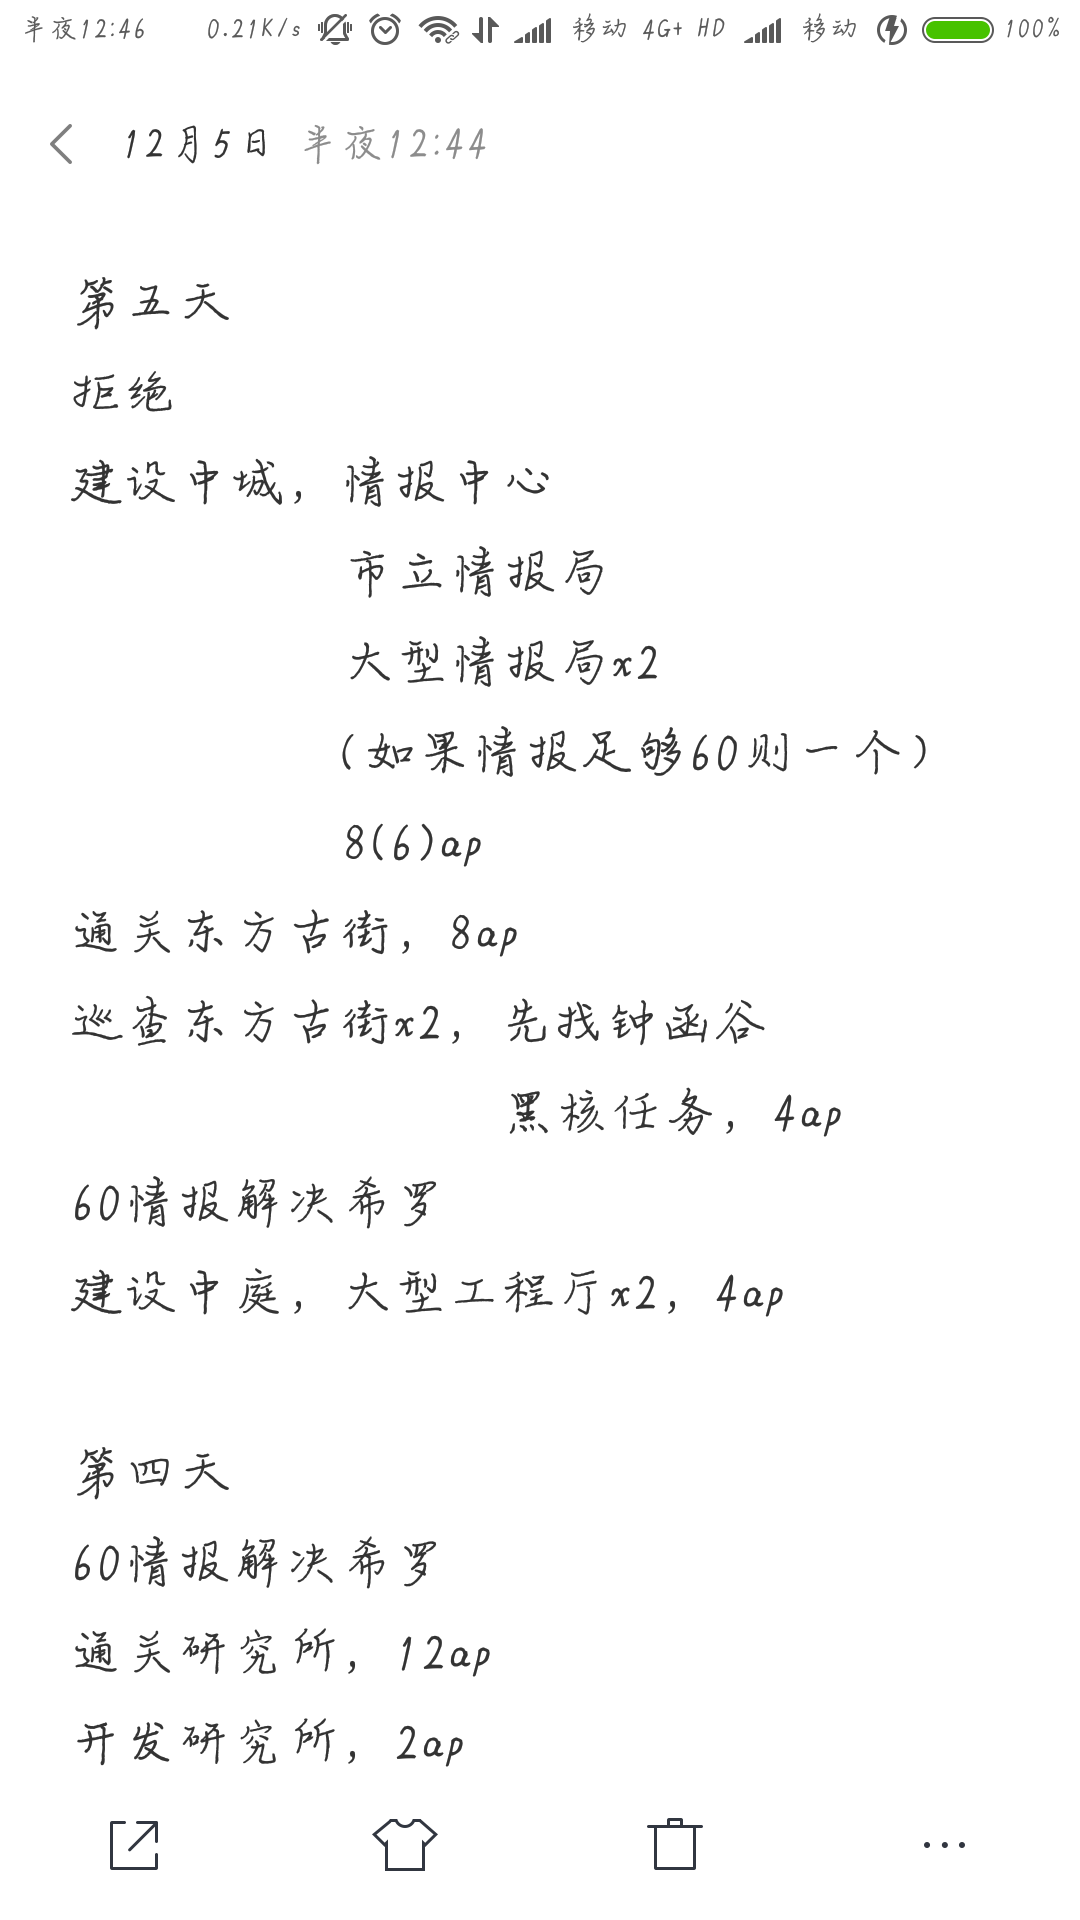 半夜12:46 0.21K/s 移动 4G+ HD 移动 100%
12月5日 半夜12:44
第五天
拒绝
建设中城，情报中心
市立情报局
大型情报局x2
（如果情报足够60则一个）
8(6)ap
通关东方古街，8ap
巡查东方古街x2，先找钟函谷
黑核任务，4ap
60情报解决希罗
建设中庭，大型工程厅x2，4ap
第四天
60情报解决希罗
通关研究所，12ap
开发研究所，2ap